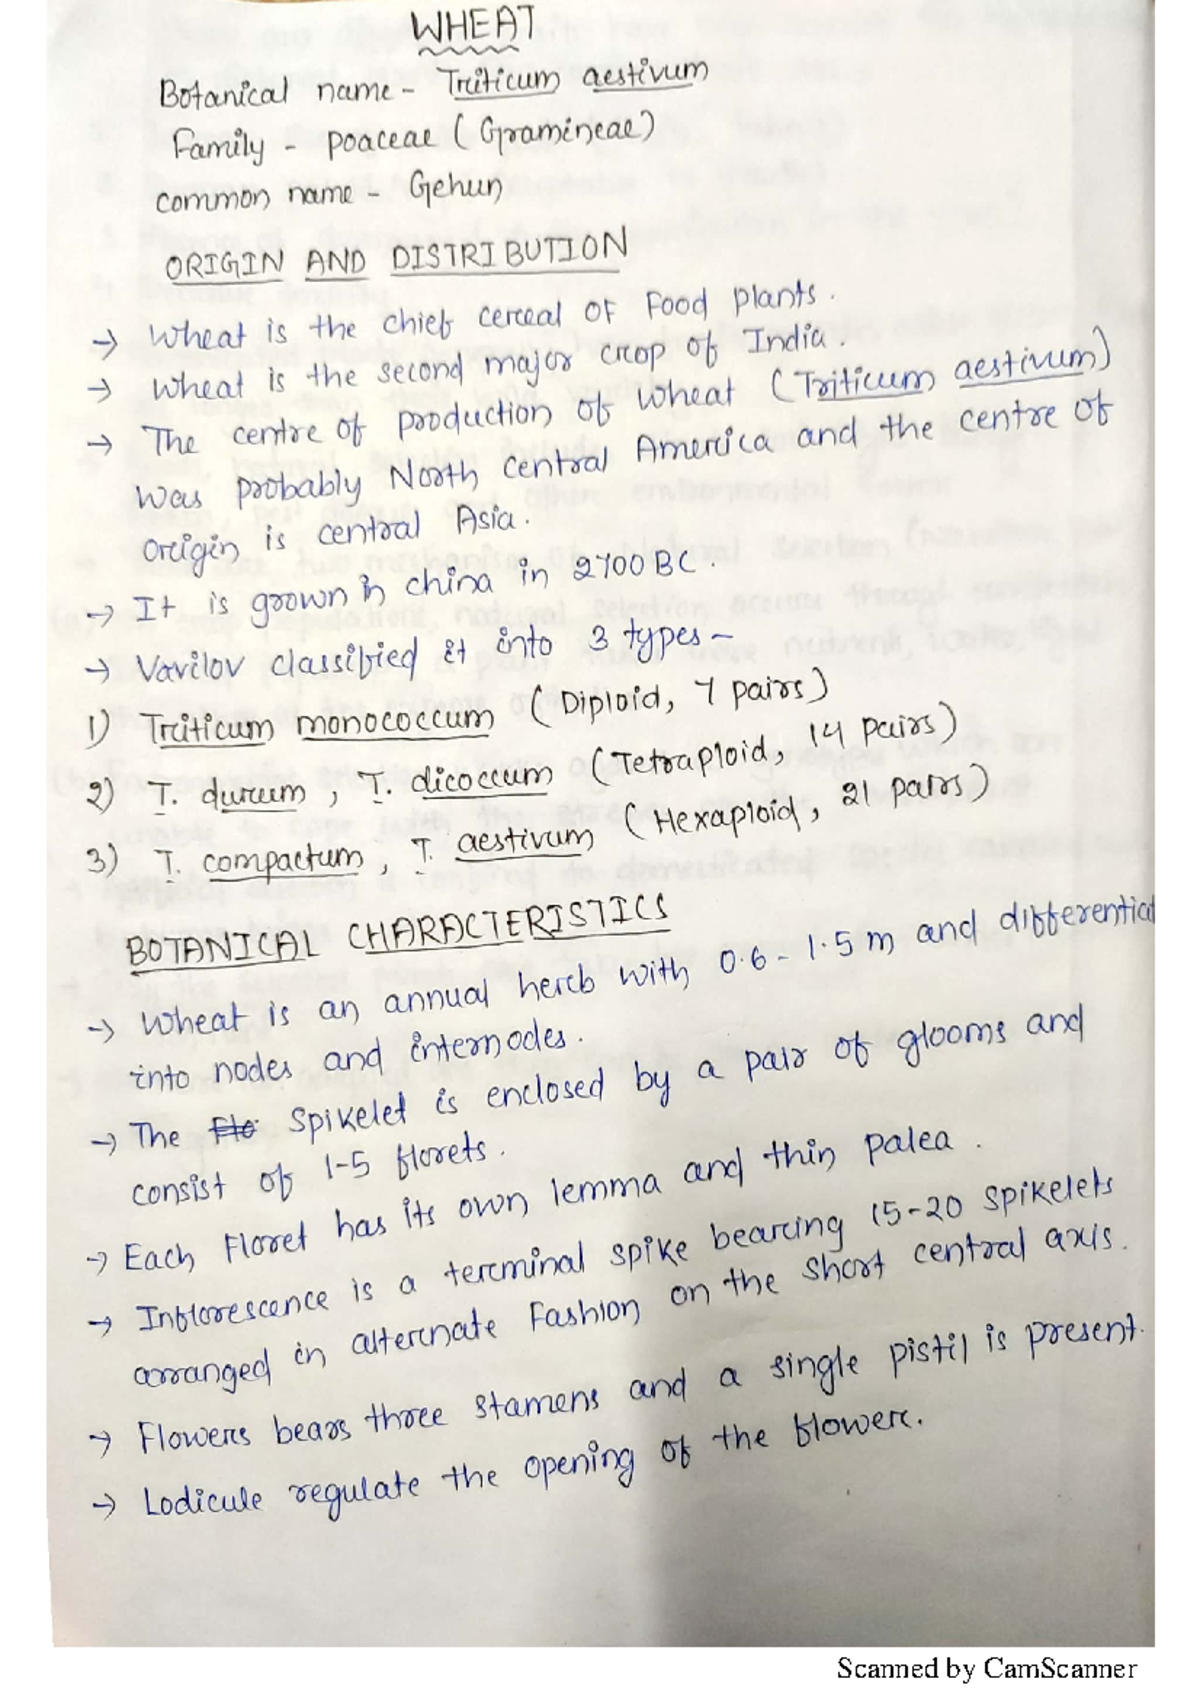 WHEAT
Botanical name - Triticum aestivum
Family - poaceae (Gramineae)
common name - Gehun
ORIGIN AND DISTRIBUTION
→ Wheat is the chief cereal of Food plants.
→ Wheat is the second major crop of India.
→ The centre of production of wheat (Triticum aestivum)
was probably North central America and the centre of
origin is central Asia.
→ It is grown in china in 2700 BC.
→ Vavilov classified it into 3 types -
1) Triticum monococcum (Diploid, 7 pairs)
2) T. durum, T. dicoccum (Tetraploid, 14 pairs)
3) T. compactum, T. aestivum (Hexaploid, 21 pairs)
BOTANICAL CHARACTERISTICS
→ Wheat is an annual herb with 0.6 - 1.5 m and differential
into nodes and internodes.
→ The Flo Spikelet is enclosed by a pair of glooms and
consist of 1-5 florets.
→ Each Floret has its own lemma and thin palea.
→ Inflorescence is a terminal spike bearing 15-20 spikelets
arranged in alternate Fashion on the short central axis.
→ Flowers bears three stamens and a single pistil is present.
→ Lodicule regulate the opening of the flower.
Scanned by CamScanner